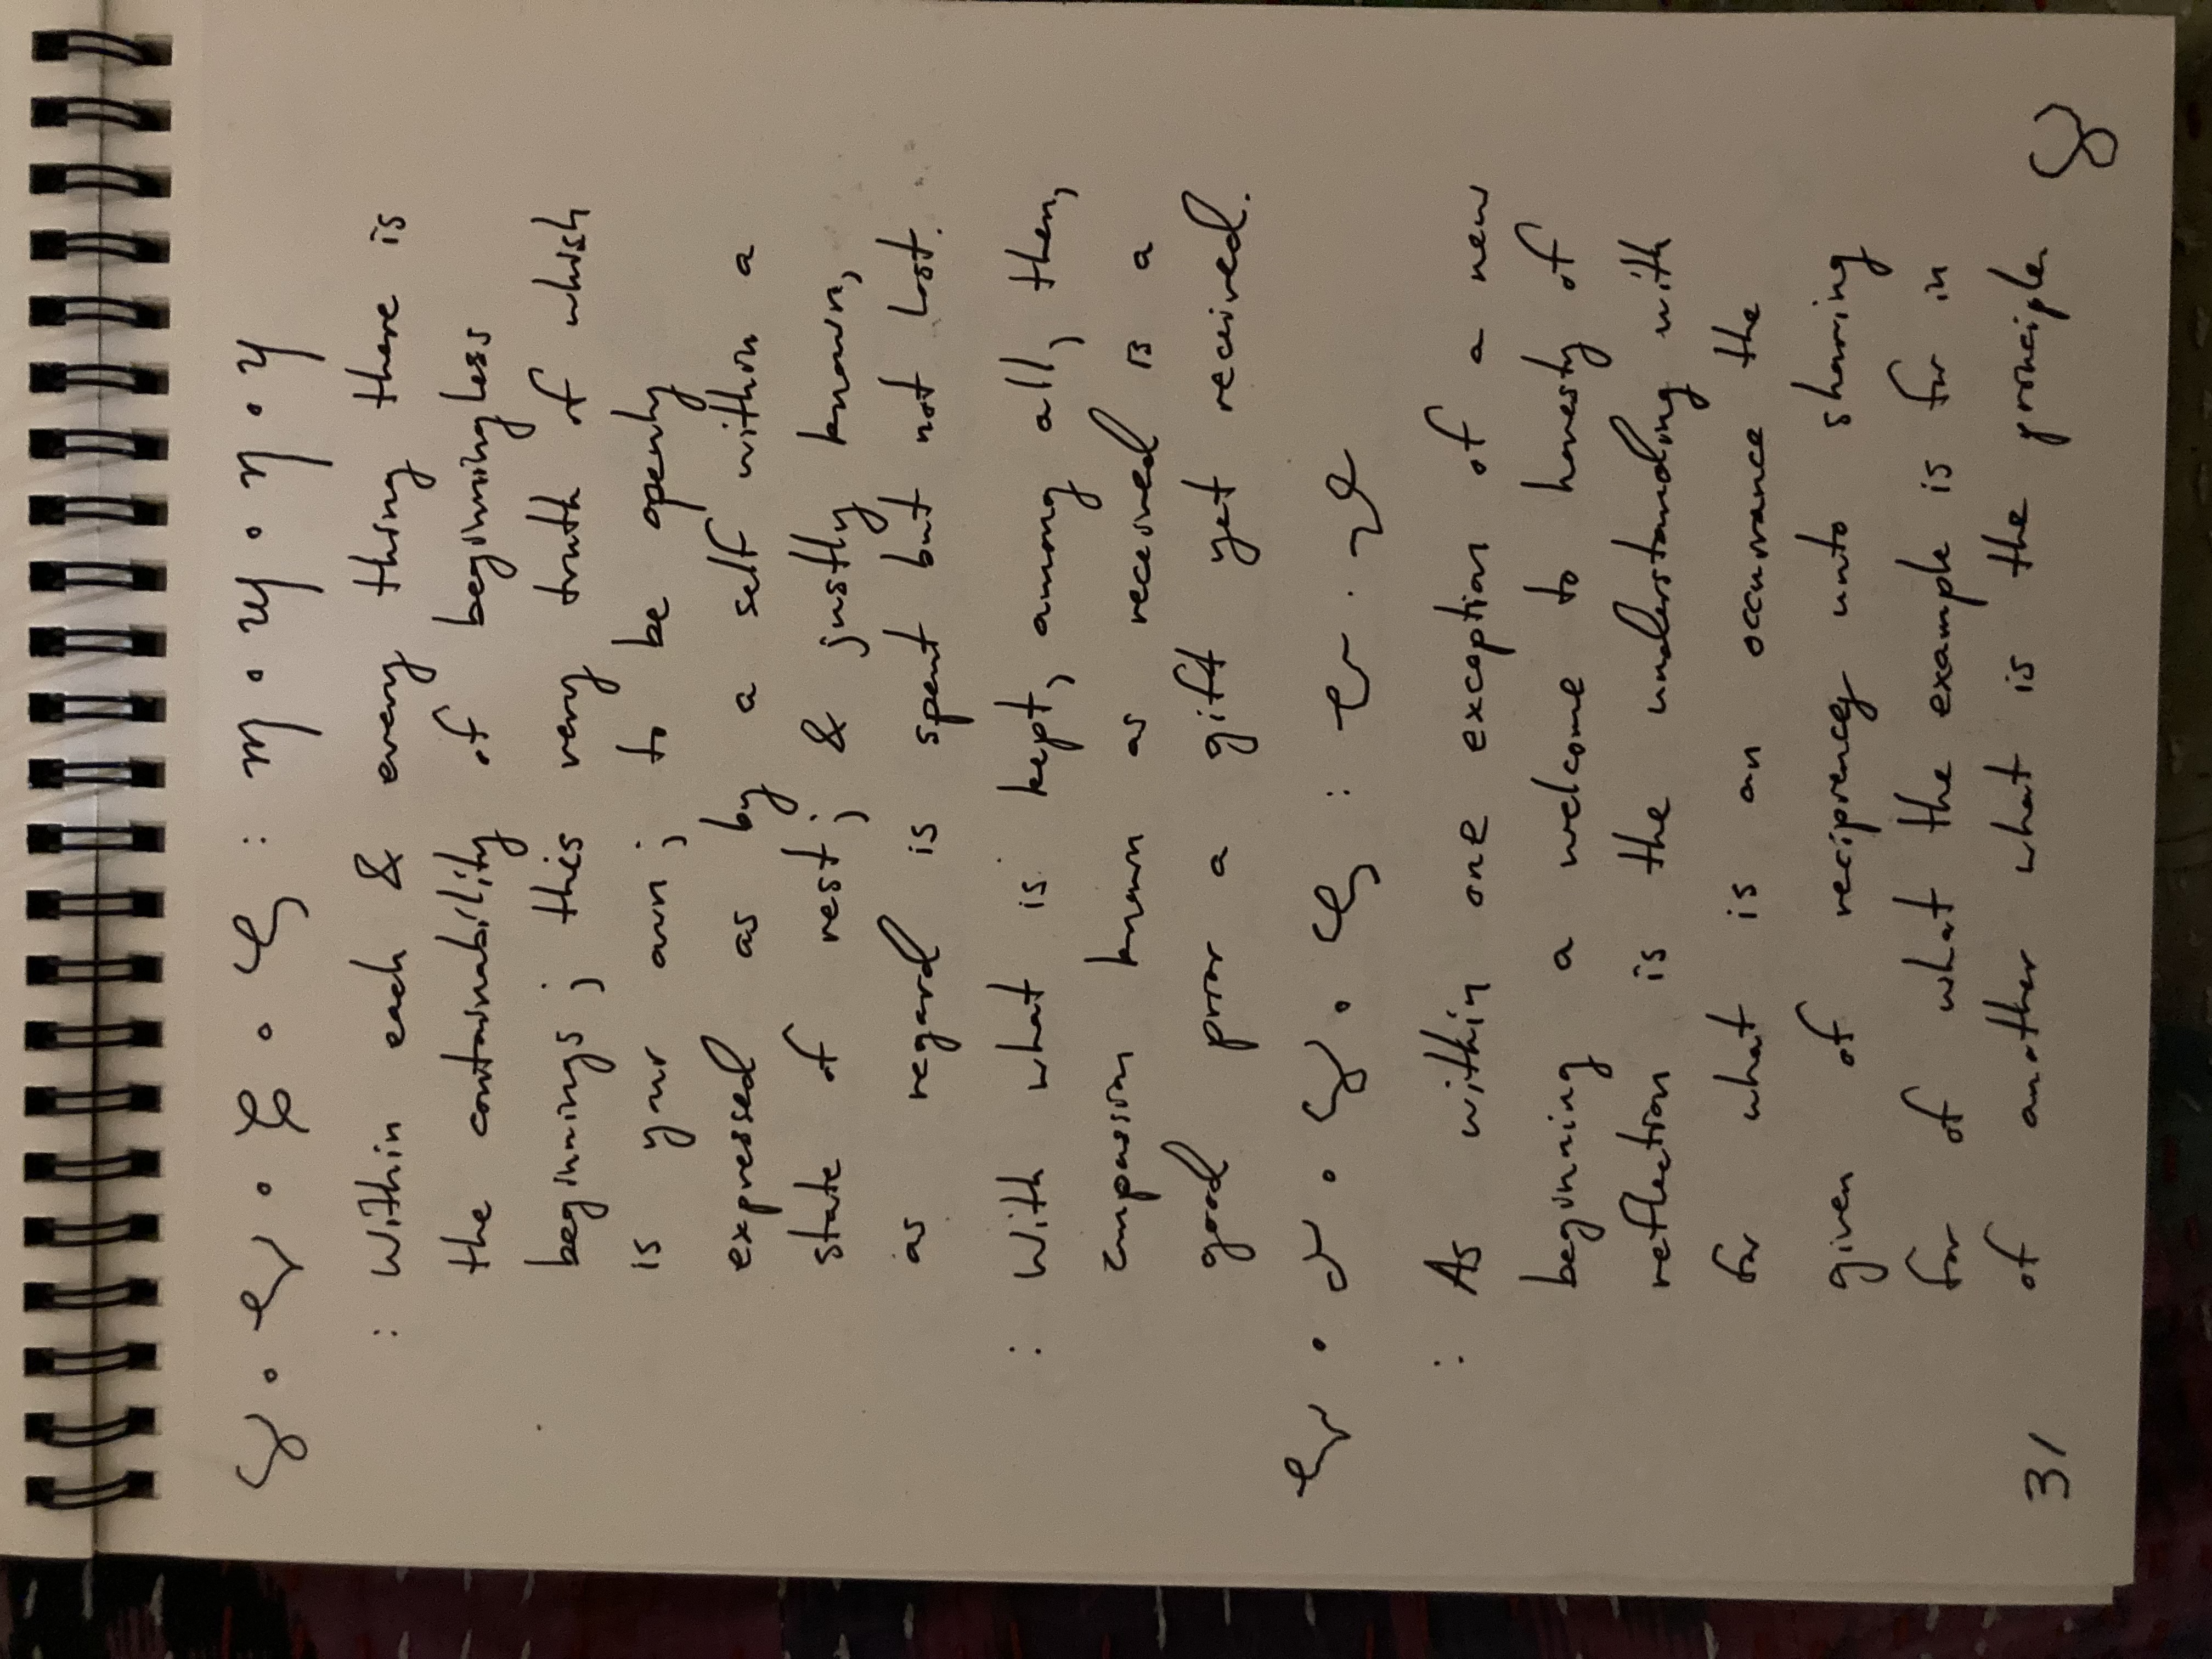 : Within each & every thing there is
the containability of beginningless
beginnings; this very truth of which
is your own; to be openly
expressed as by a self within a
state of rest; & justly known,
as regard is spent but not lost.
: With what is kept, among all, then,
compassion known as received is a
good prior a gift yet received.
: As within one exception of a new
beginning a welcome to honesty of
reflection is the understanding with
for what is an occurrance the
given of reciprency unto sharing
for of what the example is for in
of another what is the principle
31